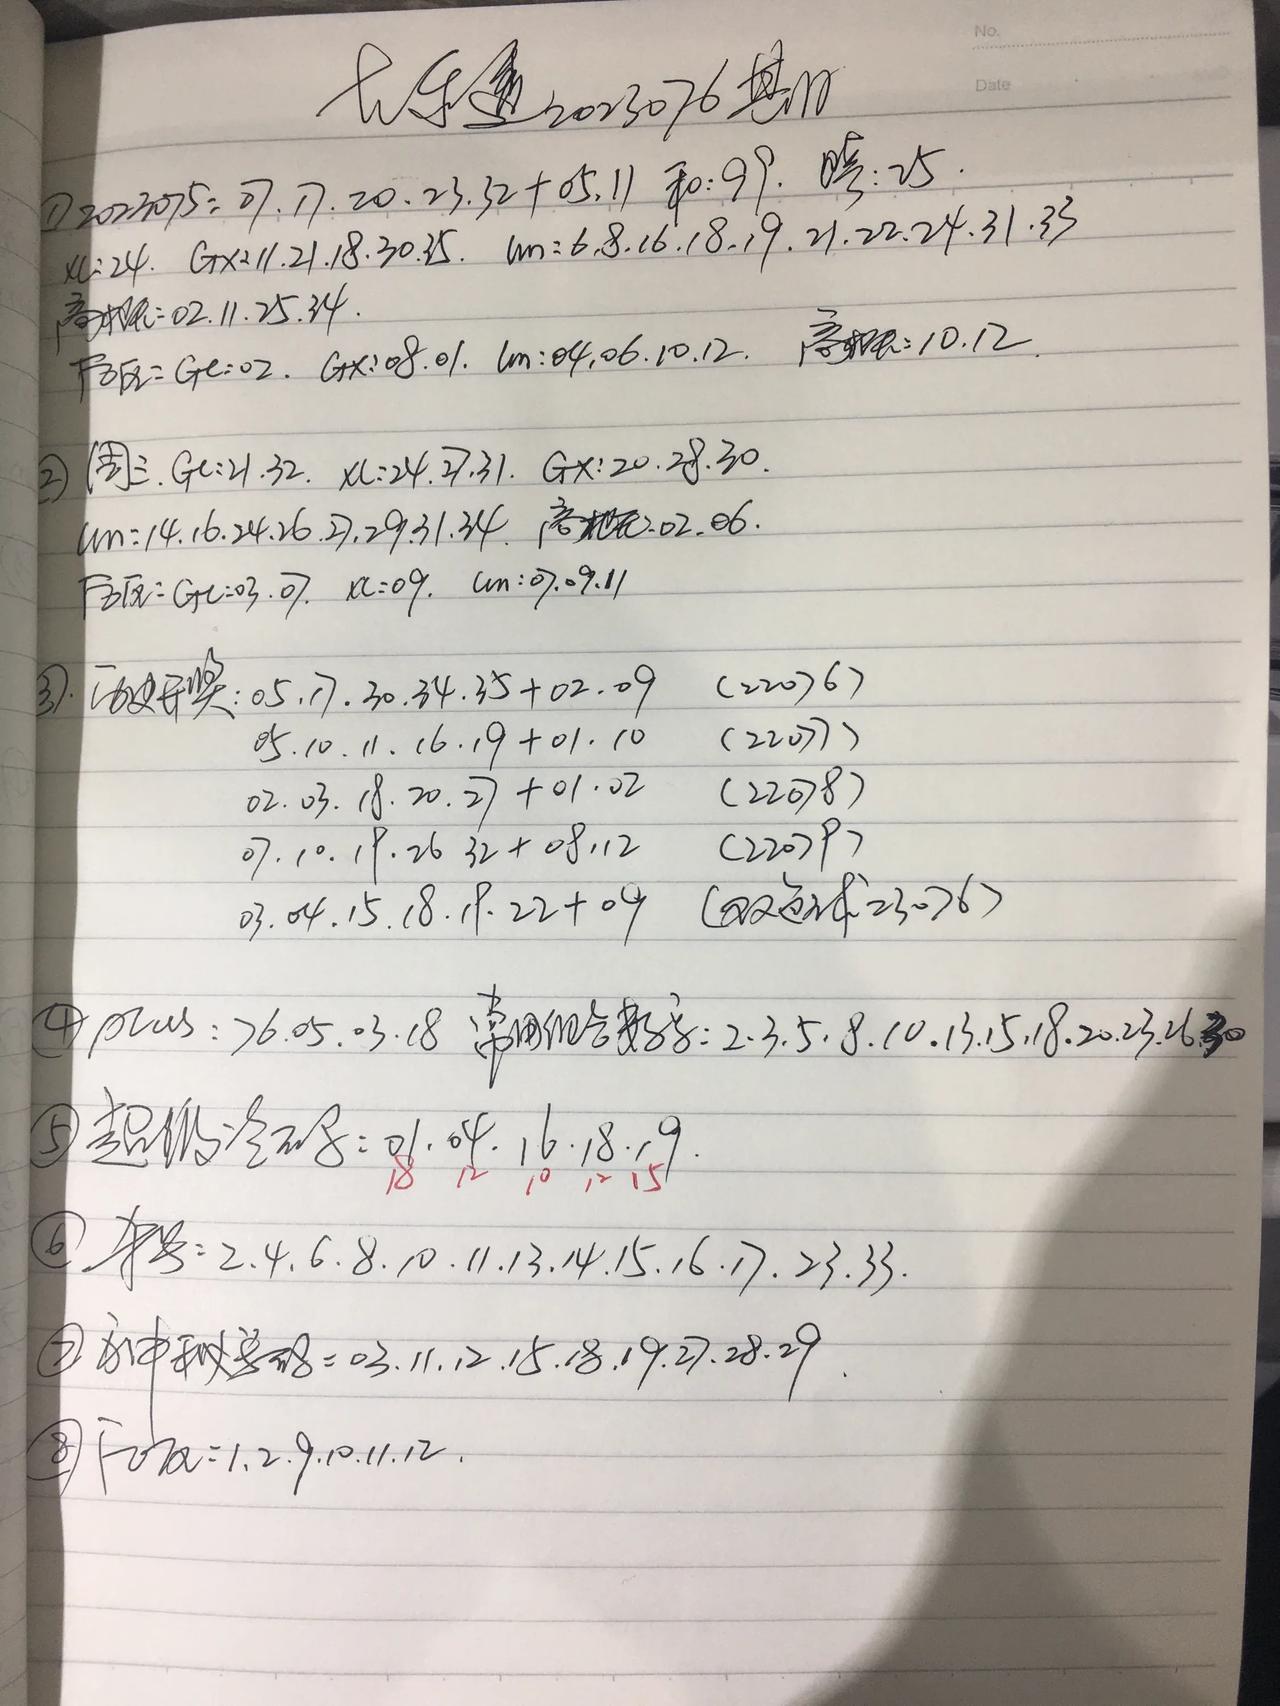 No.
Date
大乐透2023076期
① 2023075=07.17.20.23.32+05.11 和:99. 跨:25.
XL:24. GX:11.21.18.30.35. Lm:6.8.16.18.19.21.22.24.31.33
高概率:02.11.25.34.
后区=GL:02. GX:08.01. Lm:04.06.10.12. 高概率:10.12.
② 周三. GL:21.32. XL:24.27.31. GX:20.28.30.
Lm=14.16.24.26.27.29.31.34. 高概率:02.06.
后区=GL:03.07. XL:09. Lm:07.09.11
③. 历史开奖:05.17.30.34.35+02.09 (22076)
05.10.11.16.19+01.10 (22077)
02.03.18.20.27+01.02 (22078)
07.10.19.26 32+08.12 (22079)
03.04.15.18.19.22+09 (双色球:23076)
④ plus:76.05.03.18 常用组合数字:2.3.5.8.10.13.15.18.20.23.26.30
⑤ 超级冷码:01.04.16.18.19.
18 12 10 12 15
⑥ =2.4.6.8.10.11.13.14.15.16.17.23.33.
⑦ =03.11.12.15.18.19.27.28.29.
⑧ 后区=1.2.9.10.11.12.